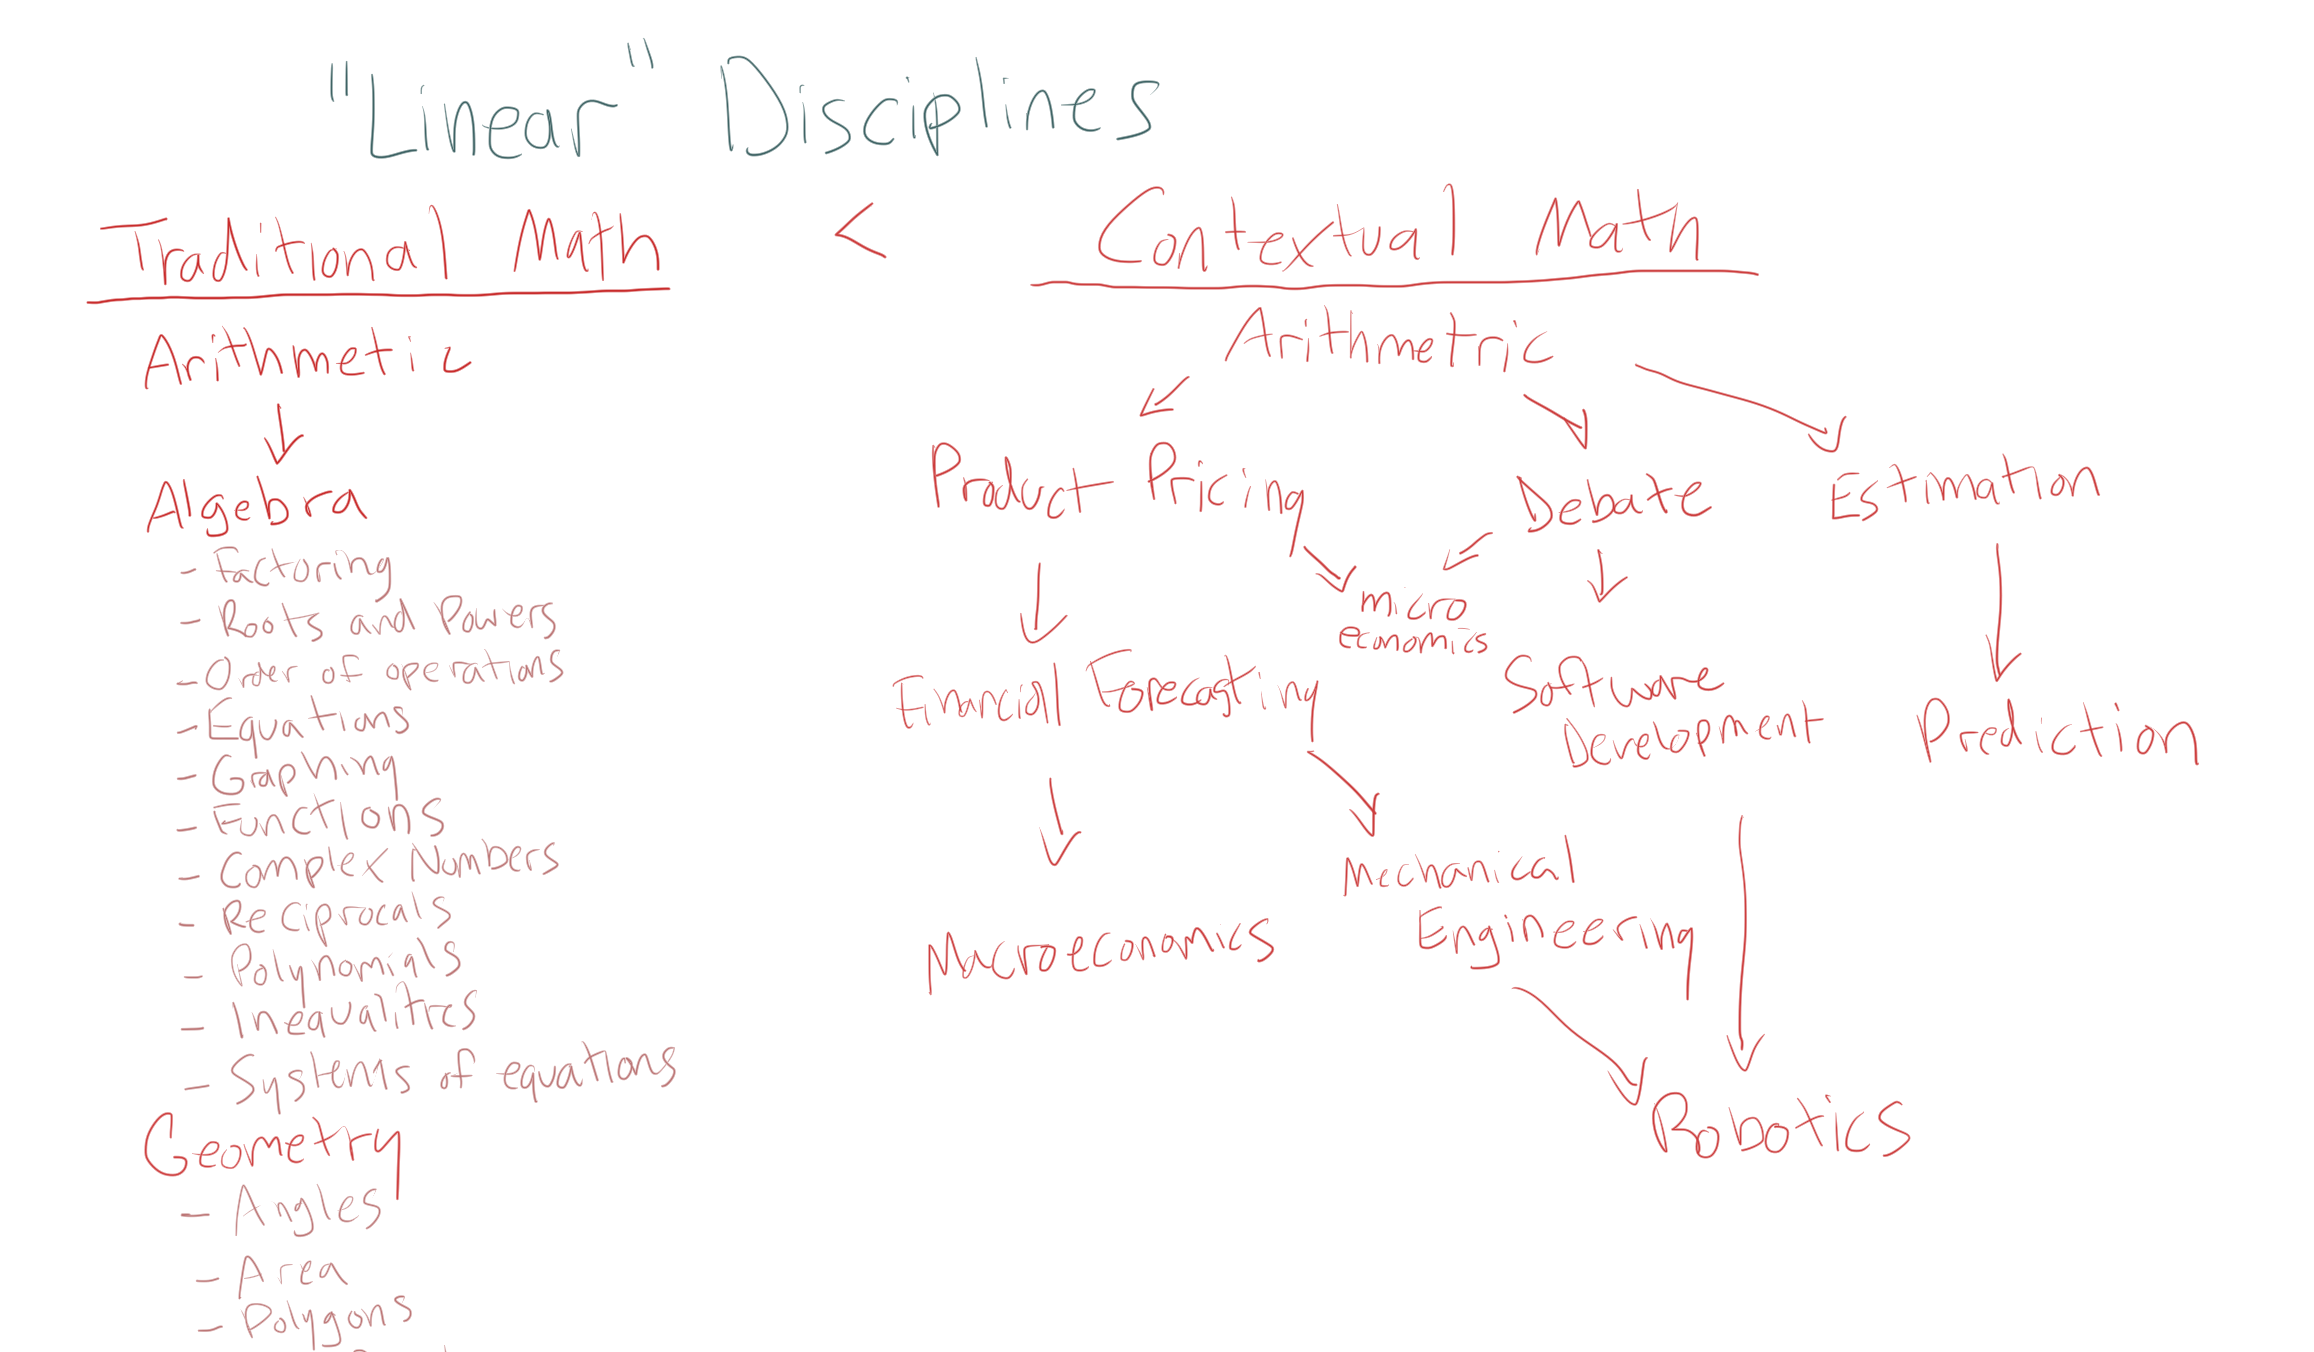 "Linear" Disciplines
Traditional Math < Contextual Math
Arithmetic
Algebra
- Factoring
- Roots and Powers
- Order of operations
- Equations
- Graphing
- Functions
- Complex Numbers
- Reciprocals
- Polynomials
- Inequalities
- Systems of equations
Geometry
- Angles
- Area
- Polygons
Arithmetric
Product Pricing
Debate
Estimation
micro
economics
Financial Forecasting
Software
Development
Prediction
Macroeconomics
Mechanical
Engineering
Robotics